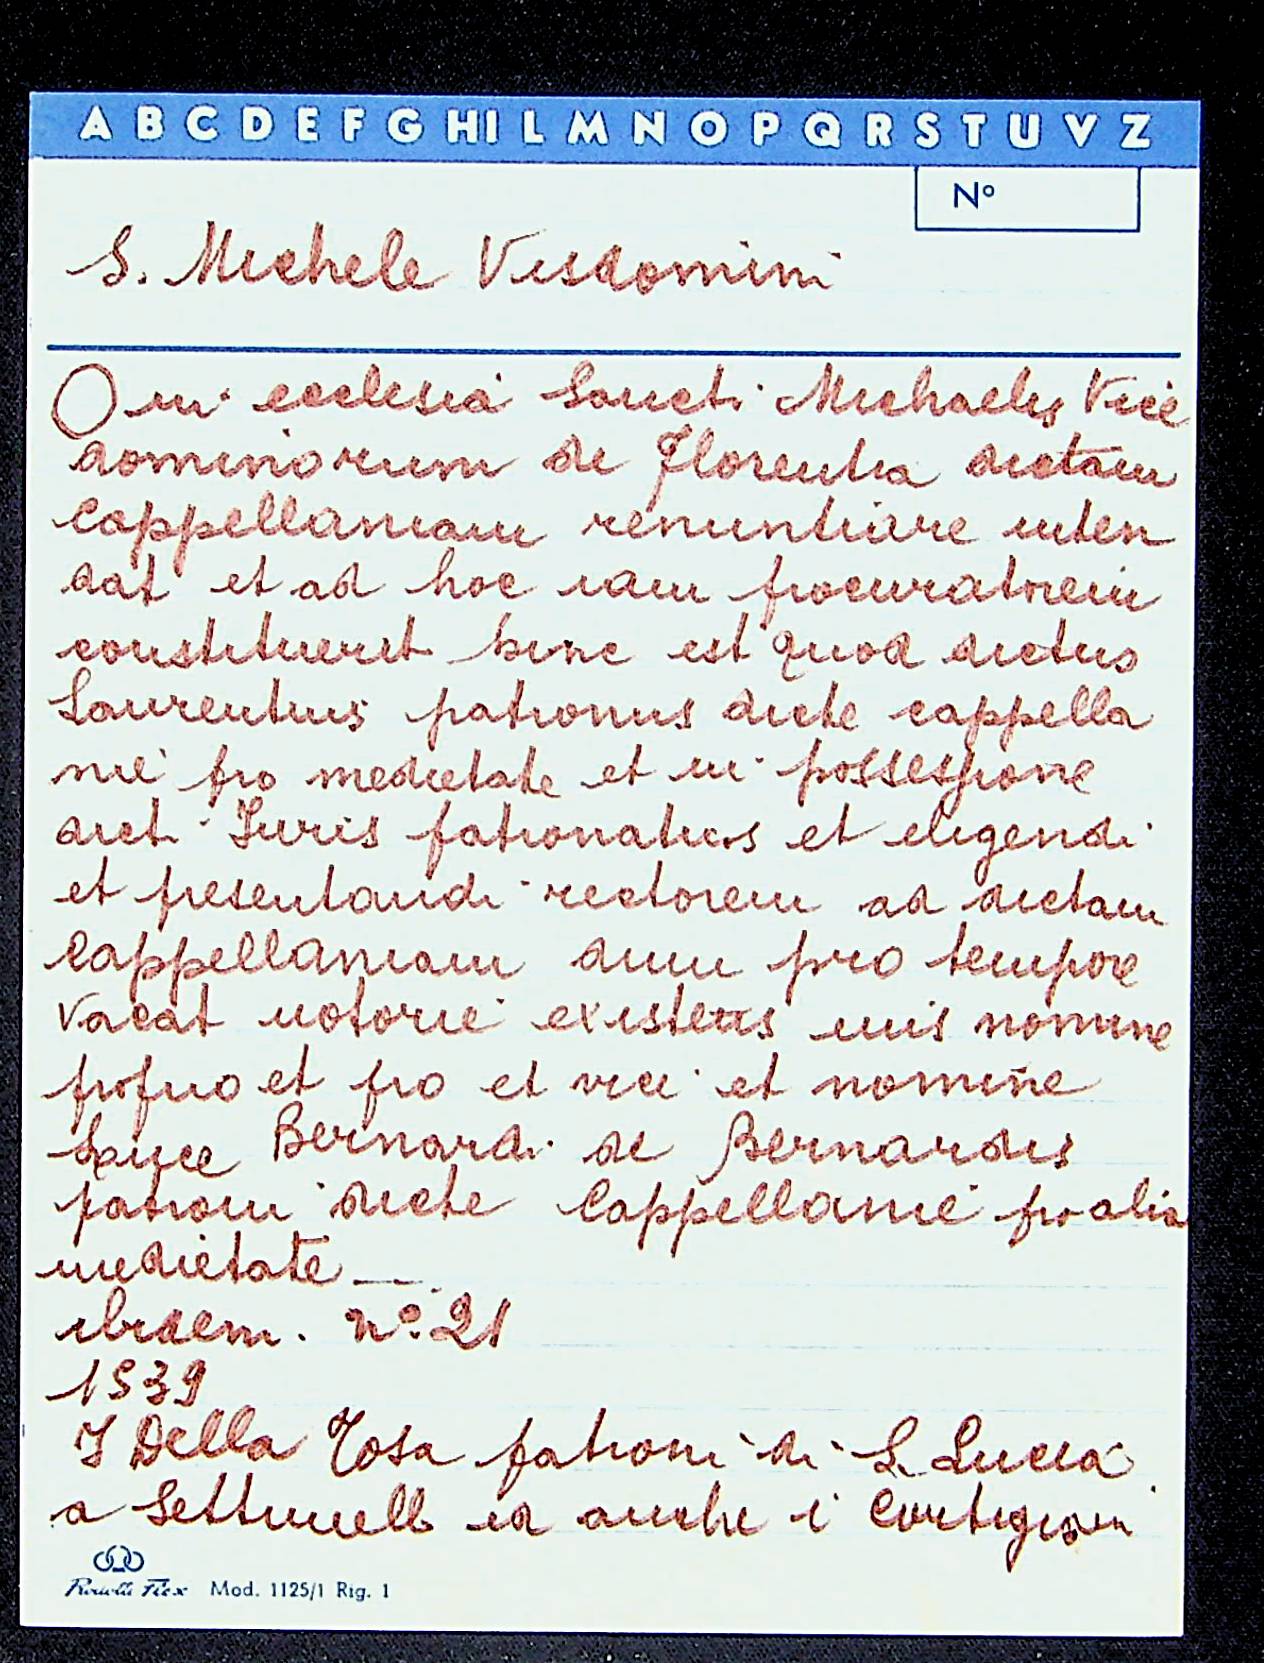 A B C D E F G HI L M N O P Q R S T U V Z
Nº
S. Michele Visdomini
O in ecclesia Sancti Michaelis Vice
dominorum de Florentia dictam
Cappellaniam renuntiare inten
dat et ad hoc iam procuratorem
constituerit hinc est quod dictus
Laurentius patronus dicte cappella
nie pro medietate et in possessione
dicti Iuris patronatus et eligendi
et presentandi rectorem ad dictam
Cappellaniam dum pro tempore
vacat notorie existens suis nomine
proprio et pro et vice et nomine
Bernardi de Bernardis
patroni dicte Cappellanie pro alia
medietate __
ibidem. nº. 21
1539
I Della Tosa patroni di S. Lucia
a Settimello ed anche i Cortigiani
Mod. 1125/1 Rig. 1